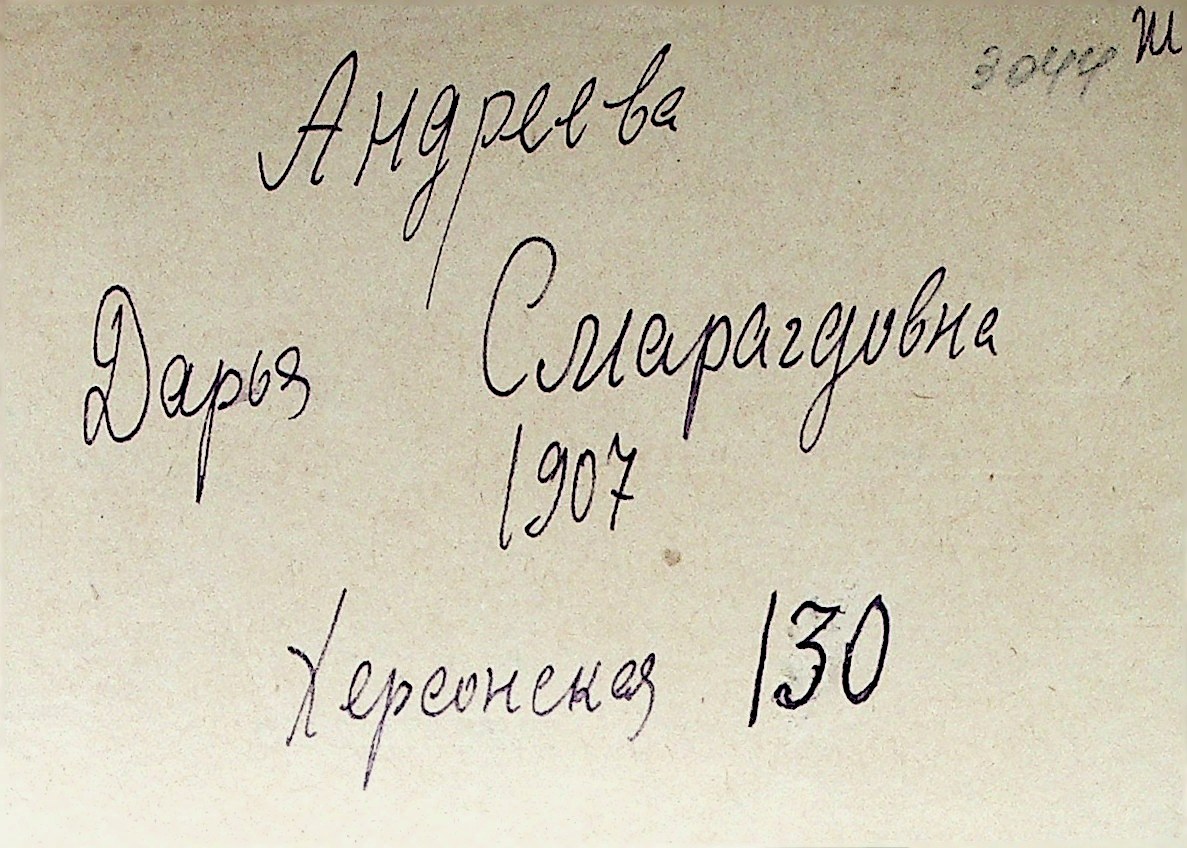 3044 Ж
Андреева
Дарья Смарагдовна
1907
Херсонская 130